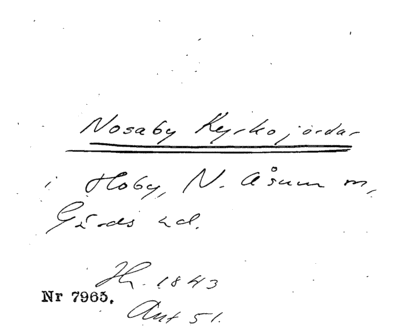 Nosaby Kyrkojordar
i Hoby, N. Åsum m,
Gärds hd.
Hr. 1843
Nr 7965.
Aut 51.